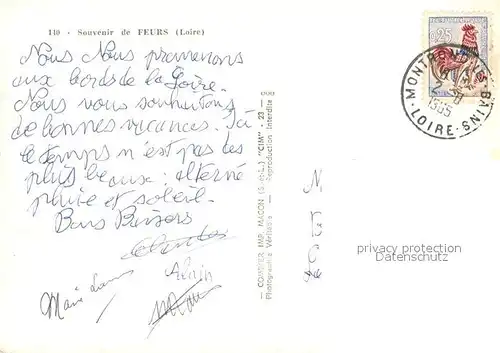 110 - Souvenir de FEURS (Loire)
Nous Nous promenons
aux bords de la Loire.
Nous vous souhaitons
de bonnes vacances. Ici
le temps n'est pas des
plus beaux : alterné
pluie et soleil.
Bons Baisers
Alain
Marie
— COMBIER IMP. MACON (S.-et-L.) "CIM" - 23 —
Photographie Véritable — Reproduction Interdite
0,25
MONTBRISON-BAINS
LOIRE
M
privacy protection
Datenschutz